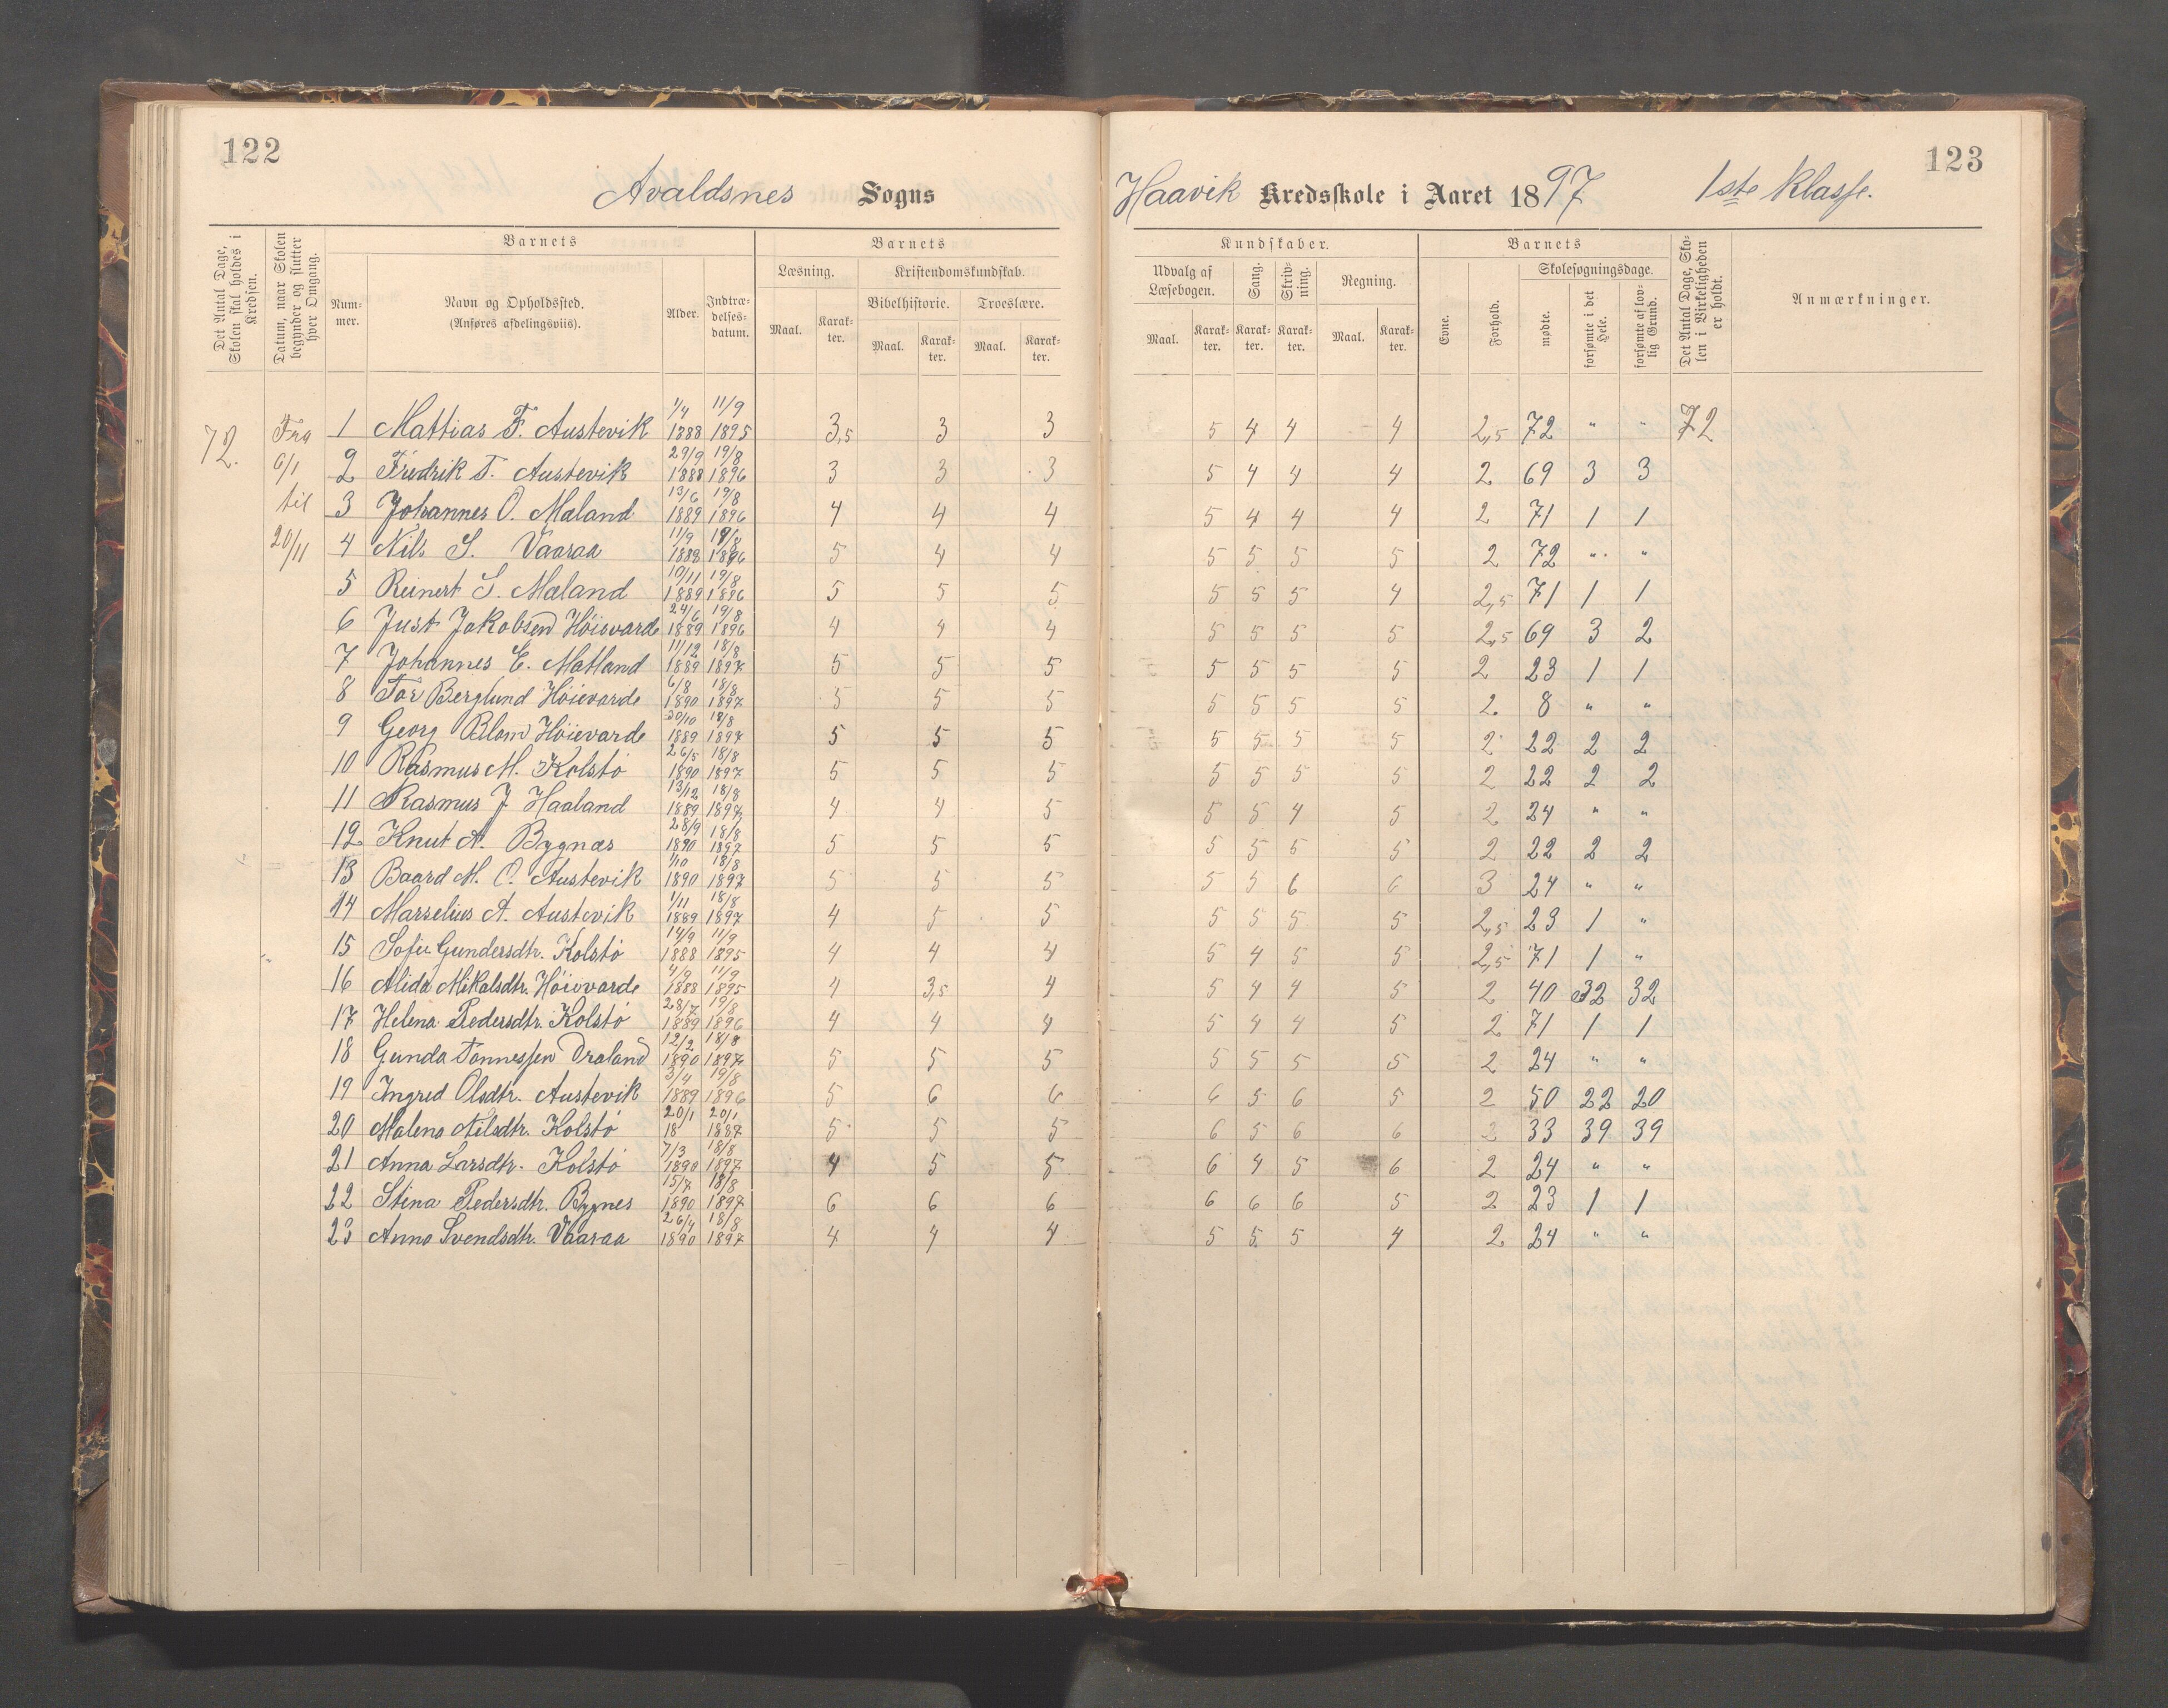 122
Avaldsnes Sogns
Det Antal Dage, Skolen skal holdes i Kredsen.
Datum, naar Skolen begynder og slutter hver Omgang.
Barnets
Nummer.
Navn og Opholdssted.
(Anføres afdelingsviis).
Alder.
Indtrædelsesdatum.
Barnets
Læsning.
Maal. Karakter.
Kristendomskundskab.
Bibelhistorie. Troeslære.
Maal. Karakter. Maal. Karakter.
72.
Fra 6/1 til 20/11
1 Mattias F. Austevik 1/4 1888 11/9 1895 3,5 3 3
2 Fredrik T. Austevik 29/9 1888 19/8 1896 3 3 3
3 Johannes O. Maland 13/6 1889 19/8 1896 4 4 4
4 Nils S. Vaaraa 11/9 1888 19/8 1896 5 4 4
5 Reinert S. Maland 10/11 1889 19/8 1896 5 5 5
6 Just Jakobsen Höievarde 24/6 1889 19/8 1896 4 4 4
7 Johannes E. Matland 11/12 1889 18/8 1897 5 5 5
8 Tor Berglund Höievarde 6/8 1890 18/8 1897 5 5 5
9 Georg Blom Höievarde 20/10 1889 18/8 1897 5 5 5
10 Rasmus M. Kolstö 26/5 1890 18/8 1897 5 5 5
11 Rasmus J Haaland 13/12 1889 18/8 1897 4 4 5
12 Knut A. Bygnæs 28/9 1890 18/8 1897 5 5 5
13 Baard M. O. Austevik 1/10 1890 18/8 1897 5 5 5
14 Marselius A. Austevik 1/11 1889 18/8 1897 4 5 5
15 Sofie Gundersdtr. Kolstö 14/9 1888 11/9 1895 4 4 4
16 Alida Mikalsdtr. Höievarde 4/9 1888 11/9 1895 4 3,5 4
17 Helena Pedersdtr. Kolstö 28/7 1889 19/8 1896 4 4 4
18 Gunda Tönnessen Draland 12/2 1890 18/8 1897 5 5 5
19 Ingred Olsdtr. Austevik 3/4 1889 19/8 1896 5 6 6
20 Malena Nilsdtr. Kolstö 20/1 18 20/1 1887 5 5 5
21 Anna Larsdtr. Kolstö 7/3 1890 18/8 1897 4 5 5
22 Stina Pedersdtr. Bygnes 15/7 1890 18/8 1897 6 6 6
23 Anna Svendsdtr. Vaaraa 26/4 1890 18/8 1897 4 4 4
123
Haavik Kredsskole i Aaret 1897 1ste Klasse.
Kundskaber.
Udvalg af Læsebogen.
Maal. Karakter.
Sang. Karakter.
Skrivning. Karakter.
Regning.
Maal. Karakter.
Barnets
Evne.
Forhold.
Skolesøgningsdage.
mødte.
forsømte i det Hele.
forsømte af lovlig Grund.
Det Antal Dage, Skolen i Virkeligheden er holdt.
Anmærkninger.
5 4 4 4 2,5 72 " " 72
5 4 4 4 2 69 3 3
5 4 4 4 2 71 1 1
5 5 5 5 2 72 " "
5 5 5 4 2,5 71 1 1
5 5 5 5 2,5 69 3 2
5 5 5 5 2 23 1 1
5 5 5 5 2 8 " "
5 5 5 5 2 22 2 2
5 5 5 5 2 22 2 2
5 5 4 5 2 24 " "
5 5 5 5 2 22 2 2
5 5 6 6 3 24 " "
5 5 5 5 2,5 23 1 "
5 4 5 5 2,5 71 1 "
5 4 4 5 2 40 32 32
5 4 4 5 2 71 1 1
5 5 5 5 2 24 " "
6 5 6 5 2 50 22 20
6 5 6 6 2 33 39 39
6 4 5 6 2 24 " "
6 6 6 5 2 23 1 1
5 5 5 4 2 24 " "